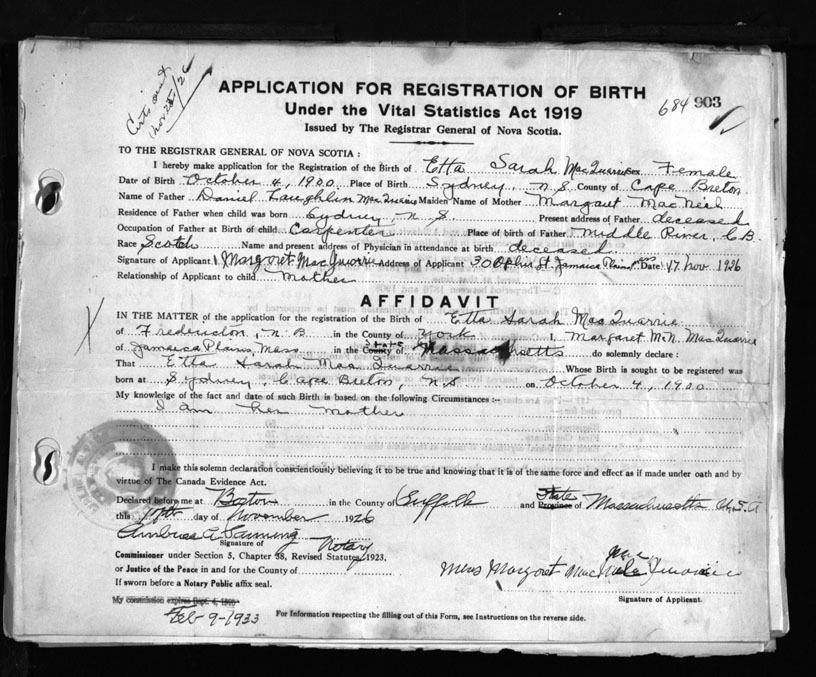 Certs sent
Nov 25/26
APPLICATION FOR REGISTRATION OF BIRTH
684 903
Under the Vital Statistics Act 1919
Issued by The Registrar General of Nova Scotia.
TO THE REGISTRAR GENERAL OF NOVA SCOTIA:
I hereby make application for the Registration of the Birth of Etta Sarah MacQuarrie Sex Female
Date of Birth October 4, 1900 Place of Birth Sydney, N.S. County of Cape Breton
Name of Father Daniel Laughlin MacQuarrie Maiden Name of Mother Margaret MacNeil
Residence of Father when child was born Sydney, N.S. Present address of Father deceased
Occupation of Father at Birth of child Carpenter Place of birth of Father Middle River, C.B.
Race Scotch Name and present address of Physician in attendance at birth deceased
Signature of Applicant Margaret MacQuarrie Address of Applicant 30 Ophir St. Jamaica Plain, Mass Date 17 Nov 1926
Relationship of Applicant to child Mother
AFFIDAVIT
IN THE MATTER of the application for the registration of the Birth of Etta Sarah MacQuarrie
of Fredericton, N.B. in the County of York I, Margaret McN. MacQuarrie
of Jamaica Plains, Mass. in the County State of Massachusetts do solemnly declare:
That Etta Sarah MacQuarrie Whose Birth is sought to be registered was
born at Sydney, Cape Breton, N.S. on October 4, 1900
My knowledge of the fact and date of such Birth is based on the following Circumstances:-
I am her mother
I make this solemn declaration conscientiously believing it to be true and knowing that it is of the same force and effect as if made under oath and by
virtue of The Canada Evidence Act.
Declared before me at Boston in the County of Suffolk and Province State of Massachusetts U.S.A
this 17th day of November 1926
Ambrose A
Signature of Notary
Commissioner under Section 5, Chapter 38, Revised Statutes, 1923,
or Justice of the Peace in and for the County of
If sworn before a Notary Public affix seal.
Mrs Margaret Mac
Signature of Applicant.
My commission expires Sept. 4,
Feb 9-1933
For Information respecting the filling out of this Form, see Instructions on the reverse side.